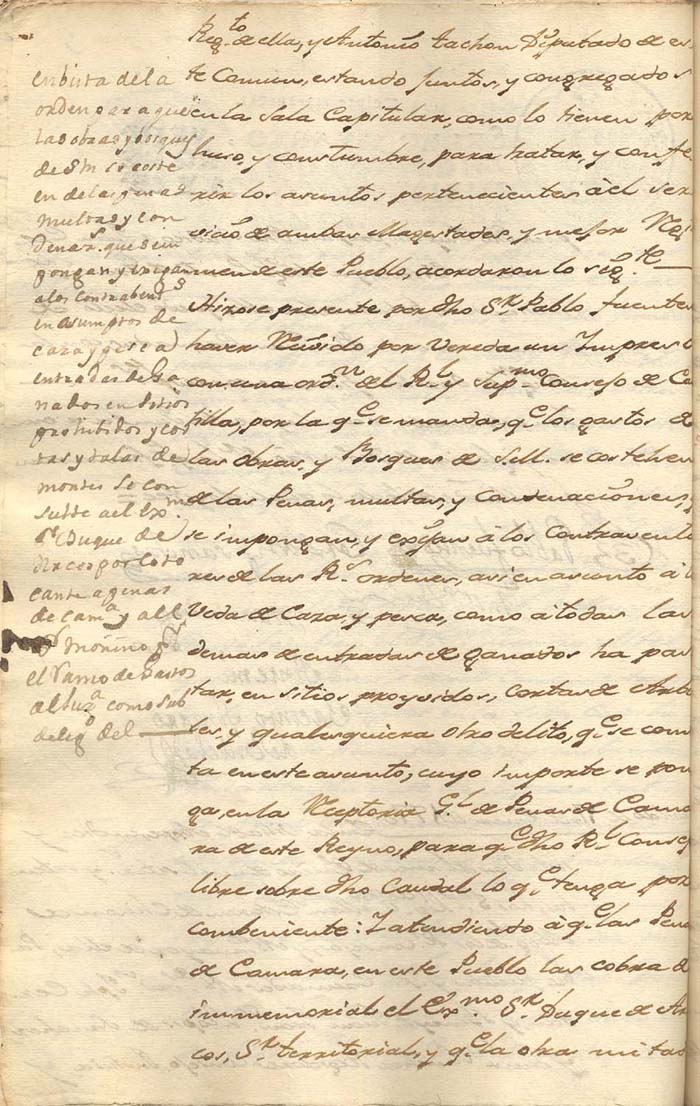 en bista de la
orden para que
las obras y bosques
de S M se coste
en de las penas
multas y con
denas. que se im
pongan y exigan
a los contrabens
en asumptos de
caza y pesca
entrades de Ga
nados en sitios
prohibidos y cor
tas y talas de
montes se con
sulte a el Exmo
Sr Duque de
Arcos por lo to
cante a penas
de Camª y al
Sr Moñino
el Ramo de Gastos
al Juzª como sub
delegº del
Regto de ella, y Antonio tachon Diputado de es
te Comun, estando juntos, y congregados
en la sala Capitular, como lo tienen por
huso, y constumbre, para tratar, y confe
rir los asuntos pertenecientes à el ser
vicio de ambas Magestades, y mejor Regi
men de este Pueblo, acordaron lo sigte
Hizose presente por dho Sr. Pablo fuentes
haver Recivido por Vereda un Impreso
con una ordn del Rl. y Supmo Consejo de Cas
tilla, por la qe. se manda, qe los gastos de
las obras, y Bosques de S.M. se costehen
de las Penas, multas, y Condenaciones,
se impongan, y exijan à los Contravento
res de las Rs. ordenes, asi en asunto à l
Veda de Caza, y pesca, como à todas las
demas de entradas de ganados ha pas
tar, en sitios proyvidos, Cortas de Arbo
les, y qualesquiera otro delito, qe. se come
ta en este asunto, cuyo importe se pon
ga, en la Receptoria Gl. de Penas de Cama
ra de este Reyno, para qe dho Rl. Consejo
libre sobre dho Caudal lo qe. tenga por
combeniente: Y atendiendo à qe las Penas
de Camara, en este Pueblo las cobra de
immemorial el Exmo. Sr. Duque de Ar
cos, Sr. territorial, y qe la otra mitad